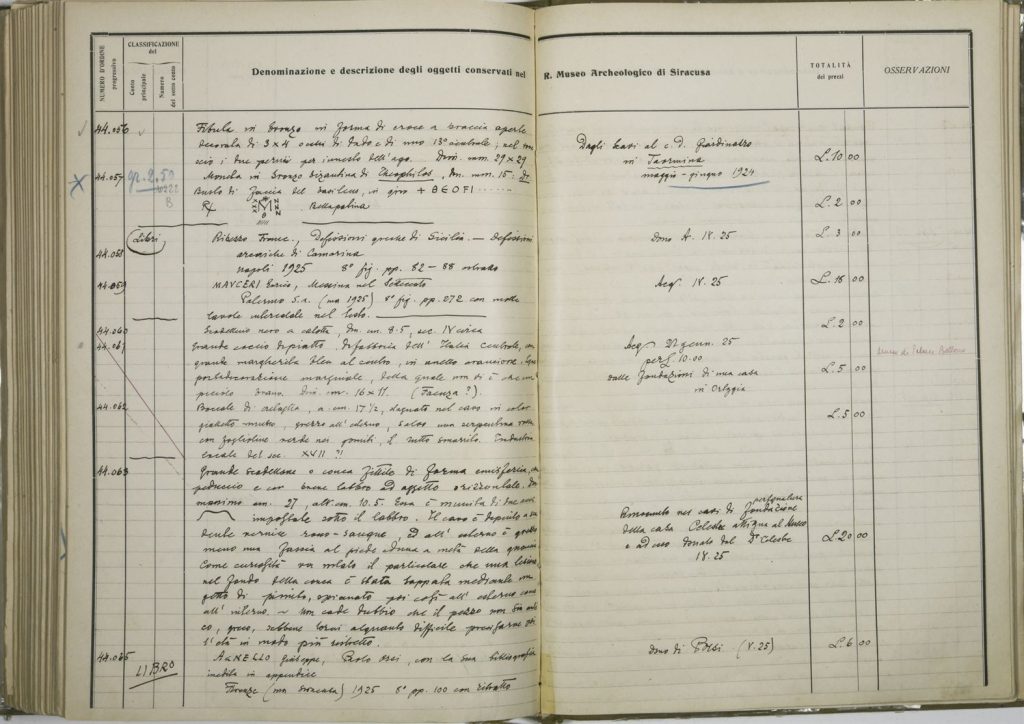 NUMERO D'ORDINE
progressivo
CLASSIFICAZIONE
del
Conto
principale
Numero
del sotto conto
Denominazione e descrizione degli oggetti conservati nel R. Museo Archeologico di Siracusa
TOTALITÀ
dei prezzi
OSSERVAZIONI
44.056
Fibula in bronzo in forma di croce a braccia aperte
decorata di 3x4 occhi di dado e di uno 13° centrale; nel
i due pernii per innesto dell'ago. Dim. mm. 29 x 29
Dagli scavi al c. D.
in Taormina
maggio - giugno 1924
L. 10 00
44.057
gr. 2.50
B
Moneta in bronzo bizantina di Theophilos, Dm. mm. 15;
Busto di faccia del basileus, in giro + ΘEOFI
R/ M Bella patina
L. 2 00
Libri
44.058
Ribezzo Franc., Defissioni greche di Sicilia. — Defissioni
arcaiche di Camarina
Napoli 1925 8° fig. pp. 82 – 88 estratto
dono A. IV. 25
L. 3 00
44.059
MAUCERI Enrico, Messina nel Settecento
Palermo S. a. (ma 1925) 8° fig. pp. 272 con molte
tavole intercalate nel testo.
Acq. IV. 25
L. 18 00
44.060
Scodellino nero a calotta, Dm. cm. 8.5, sec. IV circa
L. 2 00
44.061
Grande coccio di piatto, di fabbrica dell'Italia centrale, con
grande margherita bleu al centro, in anello arancione.
porta decorazione marginale, della quale non vi è che un
piccolo brano. Dim. cm. 16 x 11. (Faenza?).
Acq. 22 genn. 25
per L. 10.00
dalle fondazioni di una casa
in Ortygia
L. 5 00
44.062
Boccale di cm. 17 1/2, nel cavo in color
gialletto all'esterno, salvo una serpentina
con foglioline verdi nei gomiti, il tutto smarrito. Industria
locale del sec. XVII ?!
L. 5 00
44.063
Grande scodellone o conca fittile di forma emisferica, con
peduccio e con breve labbro ad aggetto orizzontale. Dm.
massimo cm. 27, alt. cm. 10.5. Essa è munita di due anse
impostate sotto il labbro. Il cavo è dipinto a
vernice rosso-sangue, ed all'esterno è
meno una fascia al piede ed una a metà della
Come curiosità va notato il particolare che una lesione
nel fondo della conca è stata tappata mediante un
getto di piombo, spianato poi così all'esterno come
all'interno. – Non cade dubbio che il pezzo non sia
co, greco, sebbene torni alquanto difficile precisarne
l'età in modo più ristretto.
Rinvenuto nei cavi di fondazione
della casa Celeste attigua al Museo
e ad esso donato dal D.r Celeste
IV. 25
L. 20 00
44.065
LIBRO
AGNELLO Giuseppe, Paolo Orsi, con la sua bibliografia
inedita in appendice
Firenze (ma Siracusa) 1925 8° pp. 100 con ritratto
dono di Orsi. (V. 25)
L. 6 00